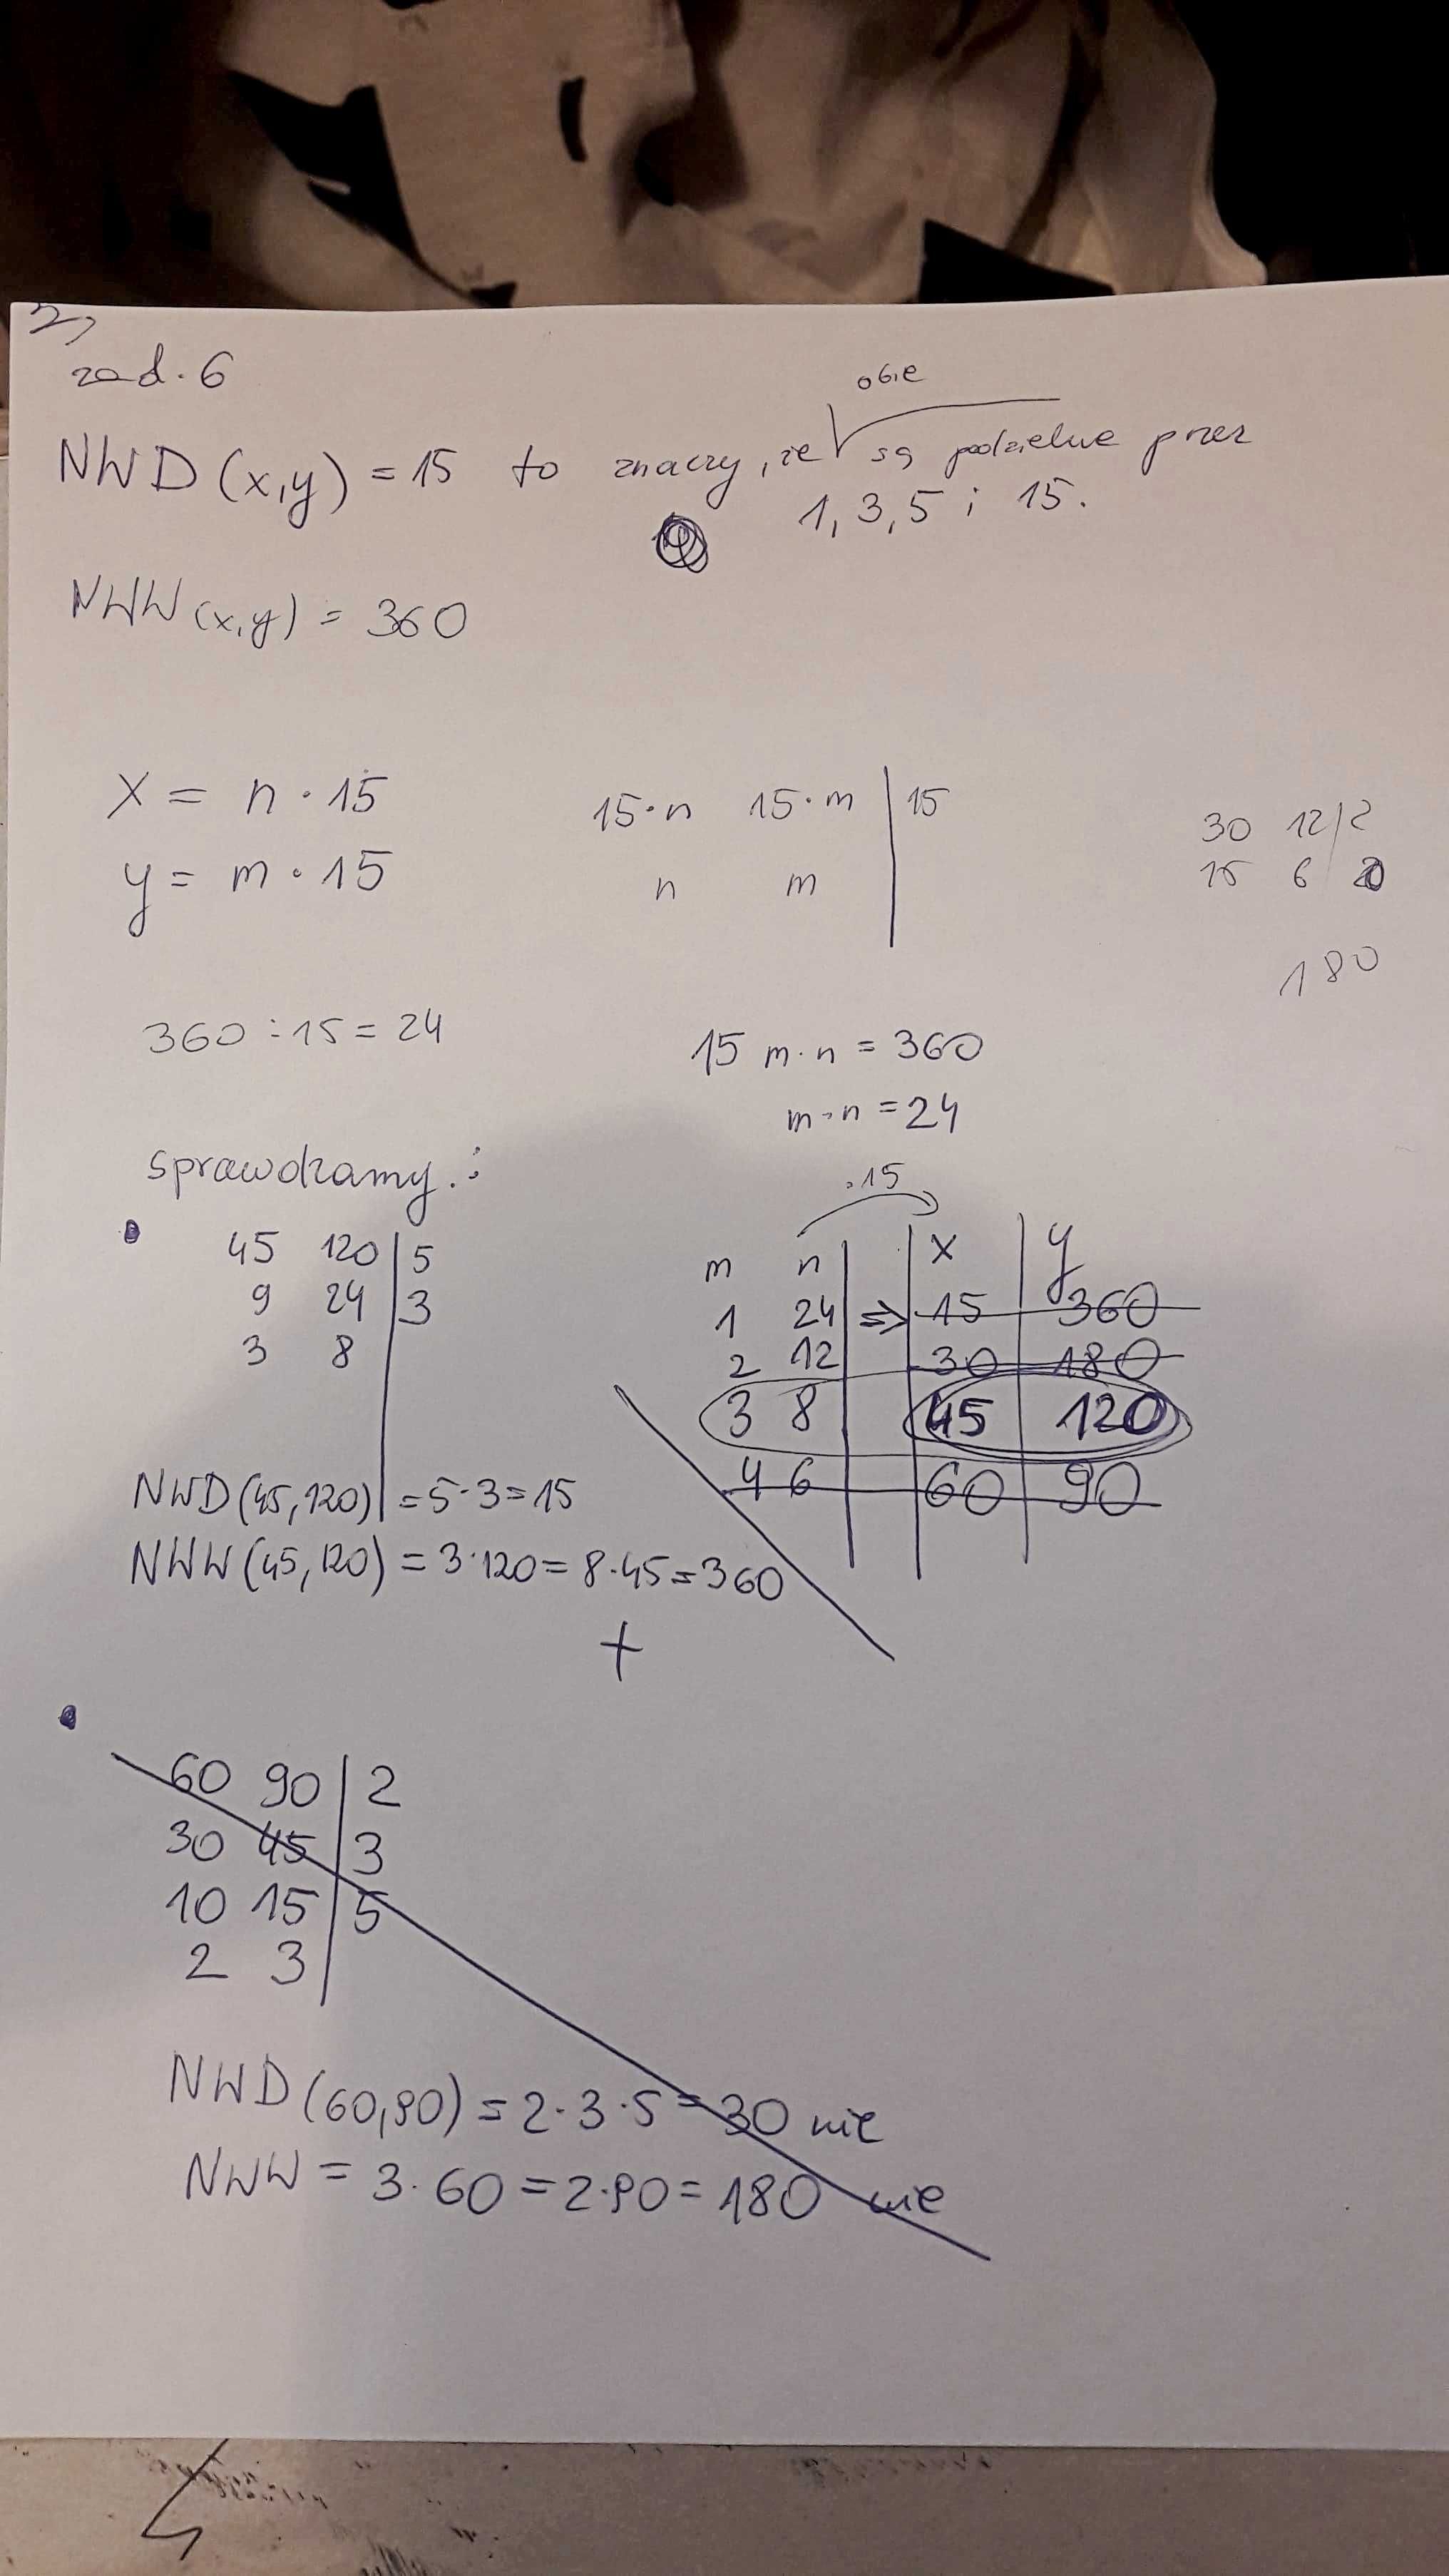 2)
zad. 6
obie
NWD (x,y) = 15 to znaczy, że są podzielne przez
1, 3, 5 i 15.
NWW (x,y) = 360
x = n · 15
y = m · 15
15·n 15·m | 15
n m
30 12 | 2
15 6
180
360 : 15 = 24
15 m·n = 360
m·n = 24
sprawdzamy :
45 120 | 5
9 24 | 3
3 8
·15
m n | x | y
1 24 | => | 15 | 360
2 12 | 30 | 180
3 8 | 45 | 120
4 6 | 60 | 90
NWD (45, 120) = 5·3 = 15
NWW (45, 120) = 3·120 = 8·45 = 360
+
60 90 | 2
30 45 | 3
10 15 | 5
2 3
NWD (60, 90) = 2·3·5 = 30 nie
NWW = 3·60 = 2·90 = 180 nie